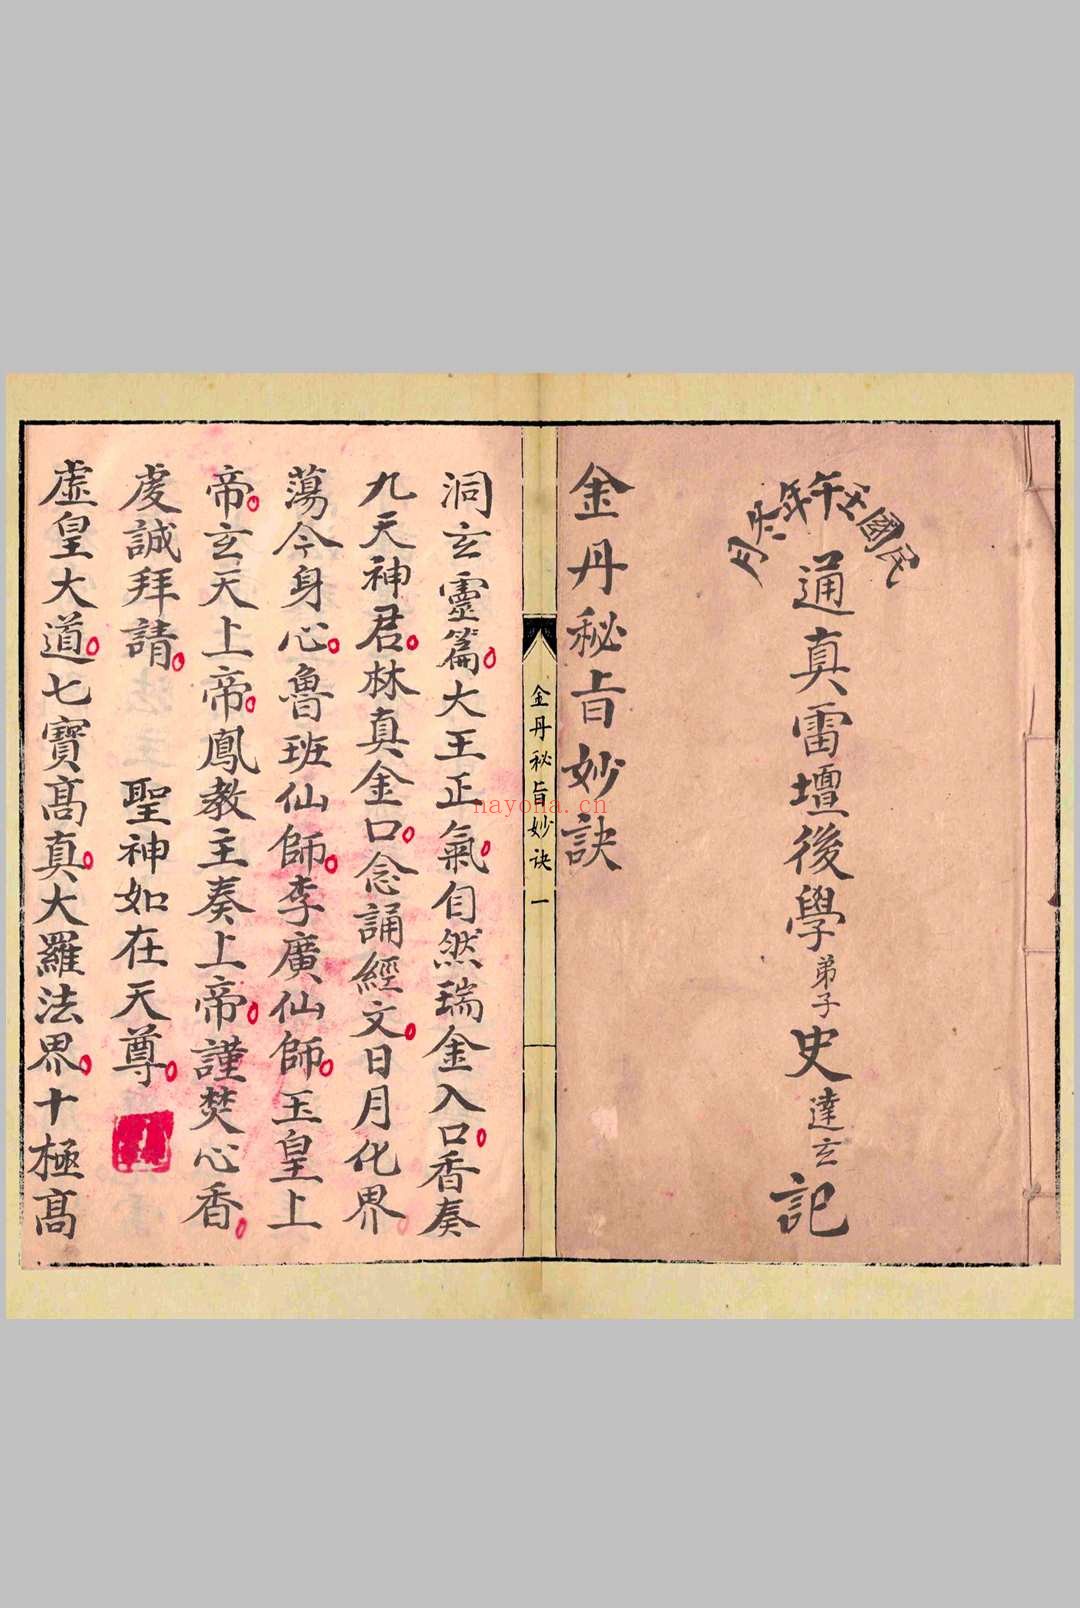 民國壬午年六月
通真雷壇後學弟子史達玄記
金丹秘旨妙訣
金丹秘旨妙訣 一
nayona.cn
洞玄靈篇大王正氣自然瑞金入口香奏
九天神君林真金口念誦經文日月化界
蕩今身心魯班仙師李廣仙師玉皇上
帝玄天上帝鳳教主奏上帝謹焚心香
虔誠拜請 聖神如在天尊
虛皇大道七寶高真大羅法界十極高